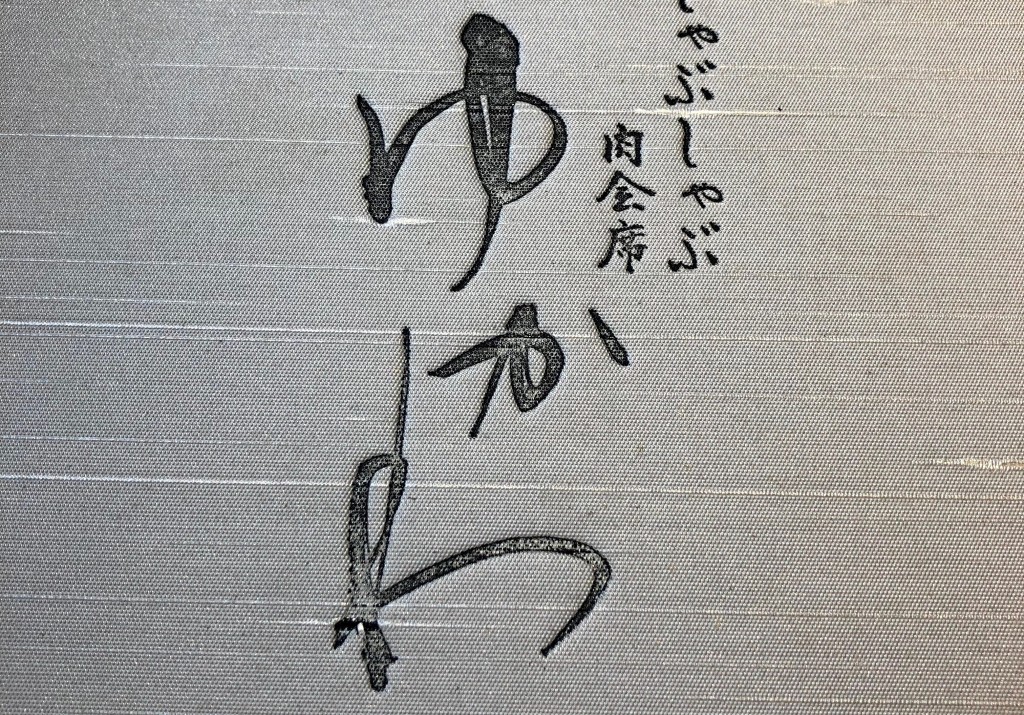 ゃぶしゃぶ
肉会席
ゆかわ